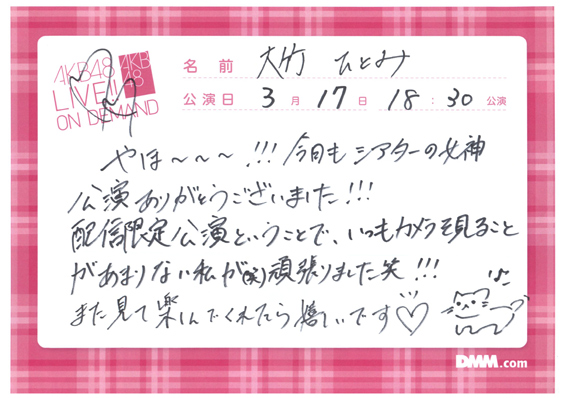 AKB48
LIVE!!
ON DEMAND
AKB
48
名前 大竹 ひとみ
公演日 3月17日 18:30公演
やほ～～～!!! 今日もシアターの女神
公演ありがとうございました!!!
配信限定公演ということで、いつもカメラを見ること
があまりない私が(笑)頑張りました笑!!!
また見て楽しんでくれたら嬉しいです♡
DMM.com